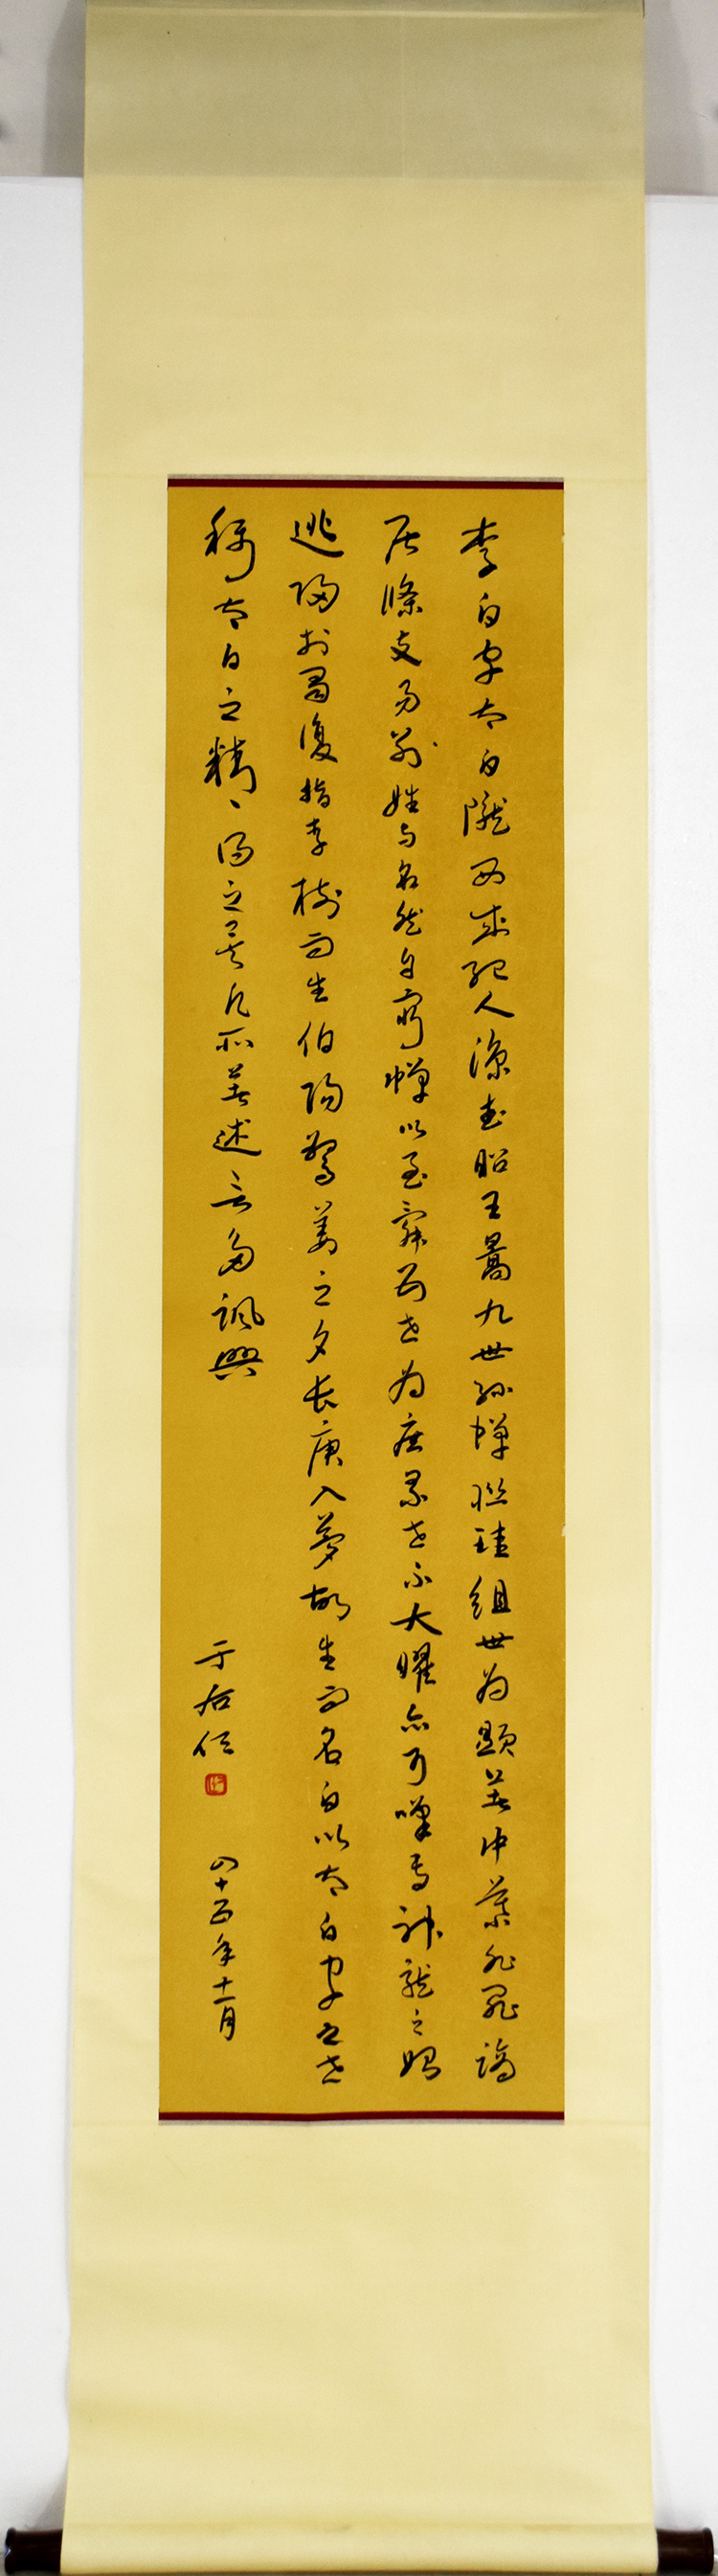 李白字太白隴西成紀人涼武昭王暠九世孫蟬聯珪組世為顯著中葉非罪謫
居條支易姓與名然自窮蟬以至舜五世為庶累世不大曜亦可嘆焉神龍之始
逃歸於蜀復指李樹而生伯陽驚姜之夕長庚入夢故生而名白以太白字之世
稱太白之精得之矣凡所著述言多諷興
于右任
四十五年十一月